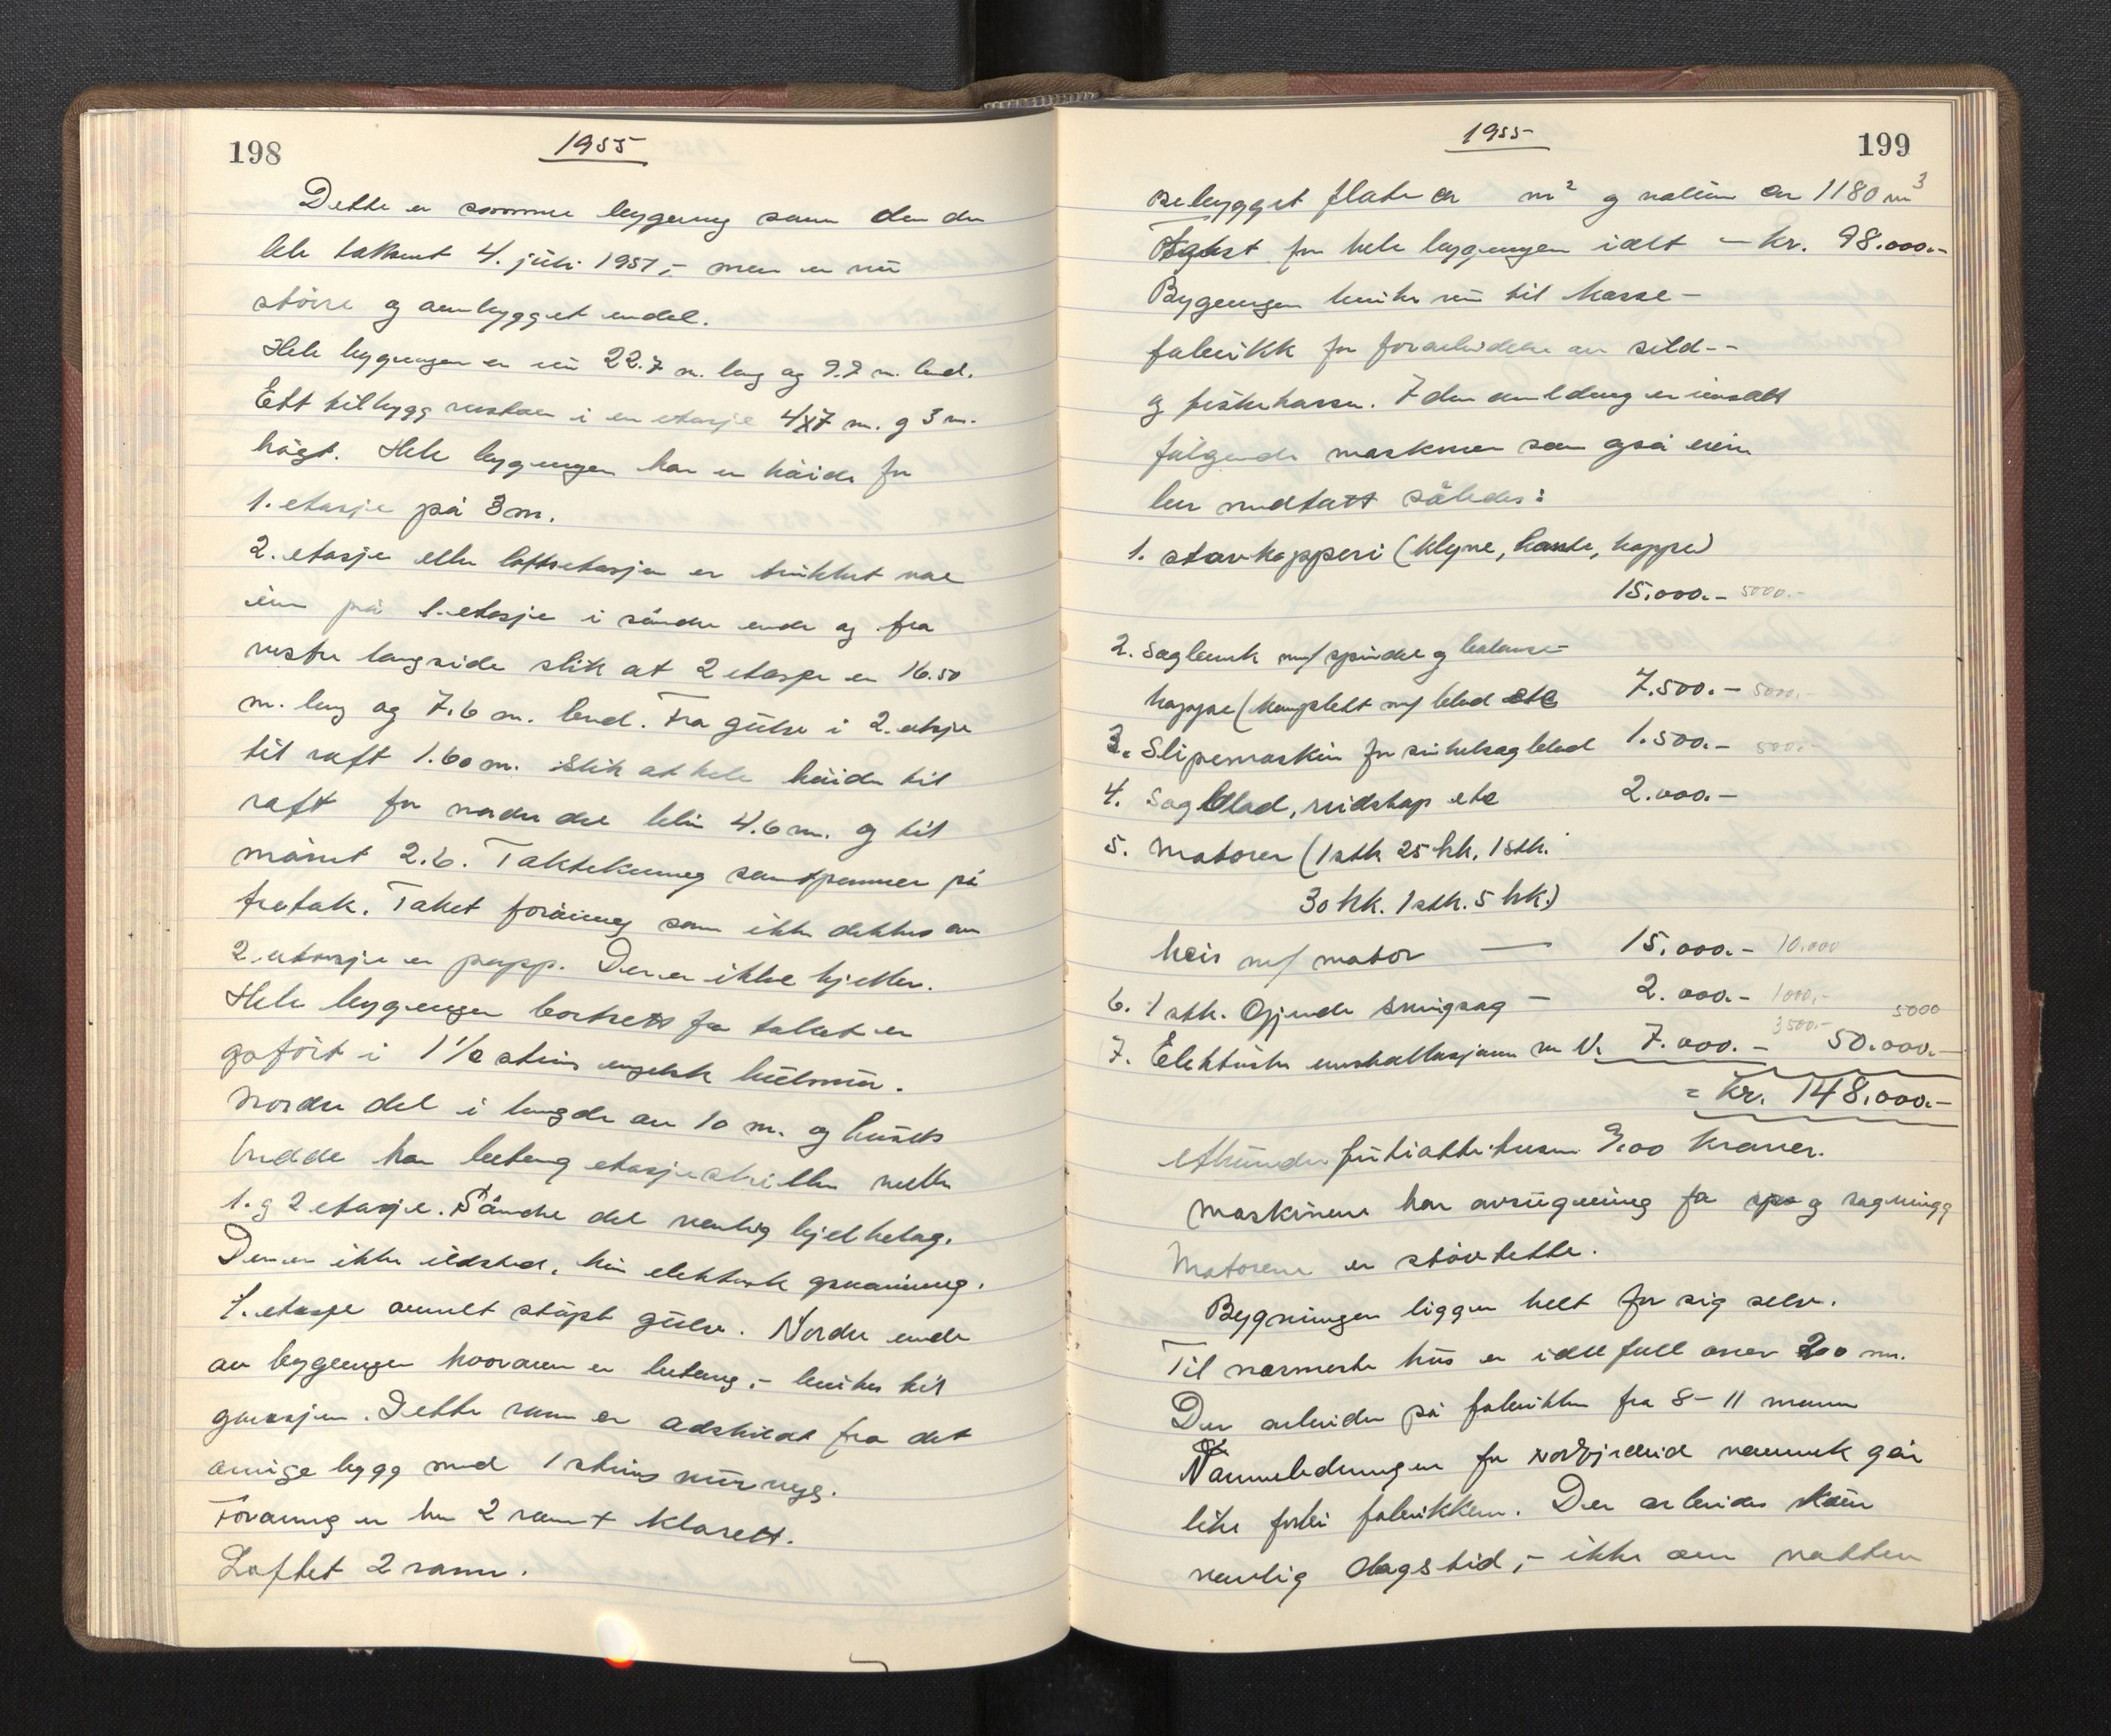 198
1955
Dette er samme bygning som den der
ble taksert 4. juli 1951,- men er nu
større og ombygget endel.
Hele bygningen er nu 22.7 m. lang og 9.7 m. bred.
Ett tilbygg vestover i en etasje 4x7 m. og 3 m.
högt. Hele bygningen har en höide for
1. etasje på 3 m.
2. etasje eller loftsetasjen er trukket noe
inn på 1. etasje i söndre ende og fra
vestre langside slik at 2 etasje er 16.50
m. lang og 7.6 m. bred. Fra gulv i 2. etasje
til raft 1.60 m. Slik at hele höide til
raft for nordre del blir 4.6 m. og til
mönet 2.6. Taktekning sementpanner på
tretak. Taket forövrig som ikke dekkes av
2. etasje er papp. Der er ikke kjeller.
Hele bygningen bortsett fra taket er
opfört i 1 1/2 stens engelsk hulmur.
Nordre del i lengde av 10 m. og husets
bredde har betong etasjeskille mellem
1. og 2 etasje. Söndre del vanlig bjelkelag.
Der er ikke ildsted, kun elektrisk opvarming.
1. etasje overalt stöpt gulv. Nordre ende
av bygningen hvorover er betong,- brukes til
garasjen. Dette rum er adskildt fra det
övrige bygg med 1 stens murvegg.
Forövrig er her 2 rum + klosett.
Loftet 2 rom.
199
1955
Bebygget flate er m² og volum er 1180 m³
Takst for hele bygningen ialt - kr. 98.000.-
Bygningen brukes nu til kasse-
fabrikk for forarbeidelse av sild--
og fiskekasser. I den anledning er innsatt
fölgende maskiner som også
ber medtatt således:
1. Stavkapperi (klyve, kante, kappe)
15.000.- 5000.-
2. Sagbenk m/ spindel og balanse-
kappe (komplett m/ blad etc 7.500.- 5000.-
3. Slipemaskin for sirkelsagblad 1.500.- 500.-
4. Sagblad, reidskap etc 2.000.-
5. Motorer (1 stk 25 hk, 1 stk.
30 hk. 1 stk. 5 hk.)
heis m/ motor — 15.000.- 10.000
6. 1 stk. Gjerde svingsag - 2.000.- 1000,-
5000
7. Elektriske innstallasjoner m V. 7.000.- 3500.- 50.000.-
= kr. 148.000.-
etthundre førtiåttetusen 0/00 kroner.
Maskinene har avsugning for spo og sagmugg
Motorene er stövtette.
Bygningen ligger helt for sig selv.
Til nærmeste hus er i alle fall over 200 m.
Der arbeider på fabrikken fra 8-11 mann
Vannledningen for vannverk går
like forbi fabrikken. Der arbeides kun
vanlig dagstid,- ikke om natten